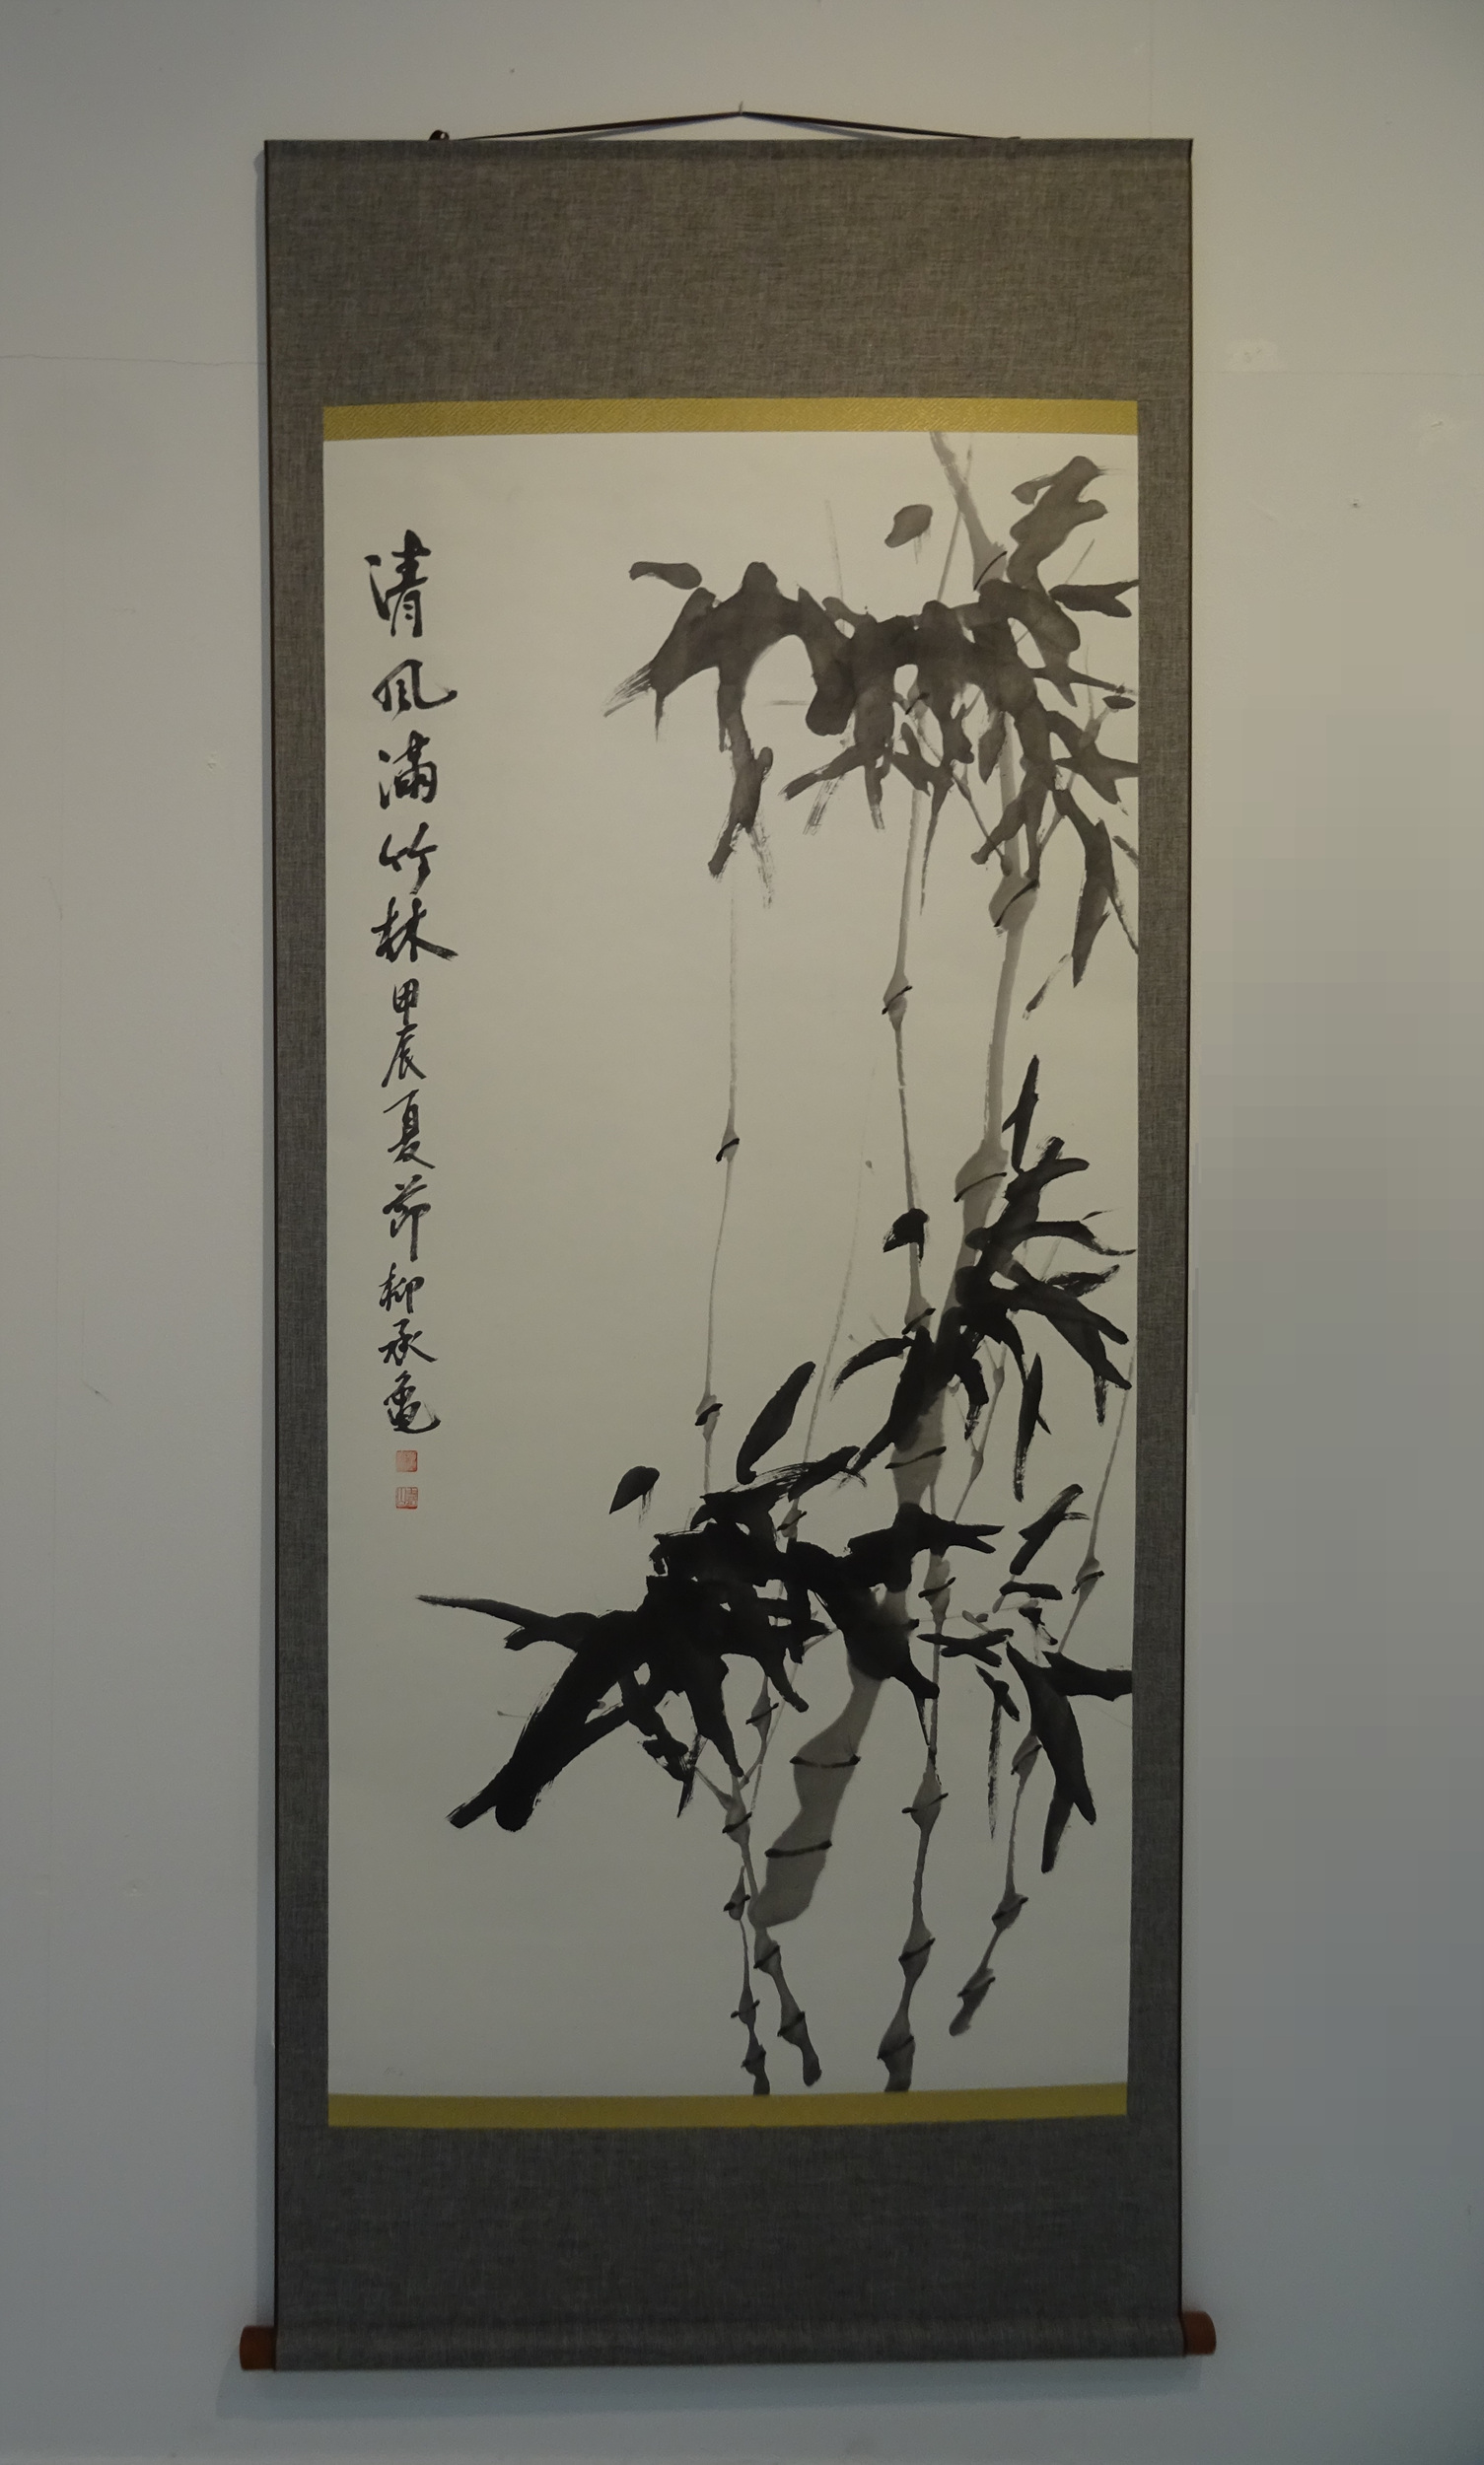 清風滿竹林甲辰夏節柳承龜